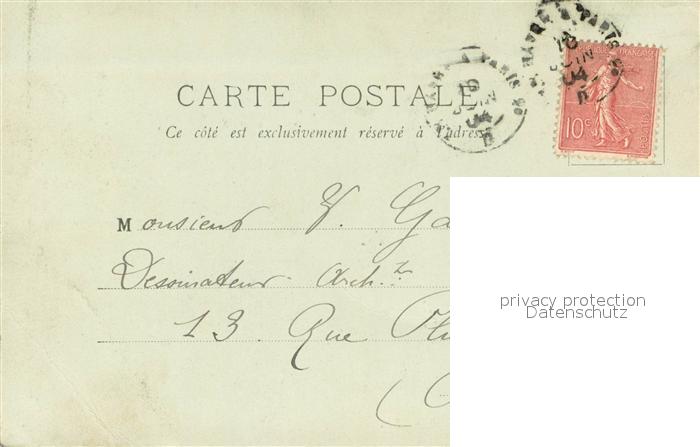 CARTE POSTALE
Ce côté est exclusivement réservé à l'adresse
HAVRE A PARIS
HAVRE A PARIS
10c
Monsieur V. Ga
Dessinateur Arch.
13 Rue
privacy protection
Datenschutz